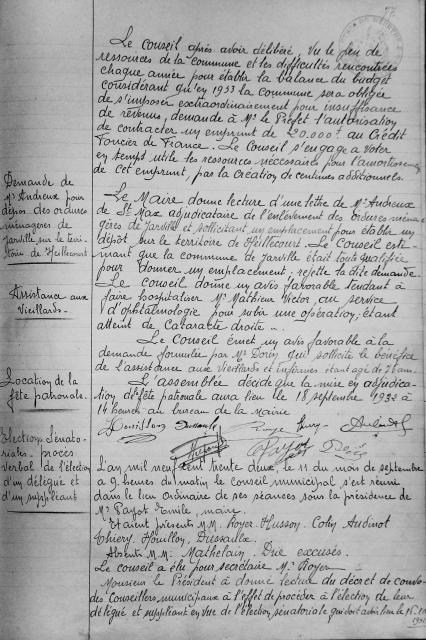 Le Conseil après avoir délibéré, Vu le peu de
ressources de la commune et les difficultés rencontrées
chaque année pour établir la balance du budget
considérant qu'en 1933 la commune sera obligée
de s'imposer extraordinairement pour insuffisance
de revenus, demande à Mr le Préfet l'autorisation
de contracter un emprunt de 20.000f au Crédit
Foncier de France. Le Conseil s'engage à voter
en temps utile les ressources nécessaires pour l'amortissement
de cet emprunt, par la Création de centimes additionnels.
Demande de
Mr Andreux pour
dépôt des ordures
ménagères de
Jarville sur le terri-
toire de Heillecourt
Le Maire donne lecture d'une lettre de Mr Andreux
de St Max adjudicataire de l'enlèvement des ordures ména-
gères de Jarville et sollicitant un emplacement pour établir un
dépôt sur le territoire de Heillecourt. Le Conseil esti-
mant que la commune de Jarville était tout qualifiée
pour donner un emplacement, rejette la dite demande.
Assistance aux
Vieillards.
Le Conseil donne un avis favorable tendant à
faire hospitaliser Mr Mathieu Victor, au service
d'ophtalmologie pour subir une opération, étant
atteint de Cataracte droite.
Le Conseil émet un avis favorable à la
demande formulée par Mr qui sollicite le bénéfice
de l'assistance aux Vieillards et infirmes étant agé de 7 ans.
Location de la
fête patronale.
L'assemblée décide que la mise en adjudica-
tion de fête patronale aura lieu le 18 septembre 1932 à
14 heures au bureau de la Mairie
Houillon
Payot
Elections Sénato-
riales - procès
verbal de l'élection
d'un délégué et
d'un suppléant
L'an mil neuf cent trente deux, le 11 du mois de septembre
à 9 heures du matin le conseil municipal s'est réuni
dans le lieu ordinaire de ses séances sous la présidence de
Mr Payot Emile, maire.
Etaient présents M.M. Royer. Husson. Colin Audinot
Thiery. Houillon.
Absents M.M. Mathelain. excusés.
Le conseil a élu pour secrétaire Mr Royer
Monsieur le Président a donné lecture du décret de convo-
des Conseillers municipaux à l'effet de procéder à l'élection de leur
délégué et suppléant en vue de l'élection sénatoriale qui doit avoir lieu le
1932